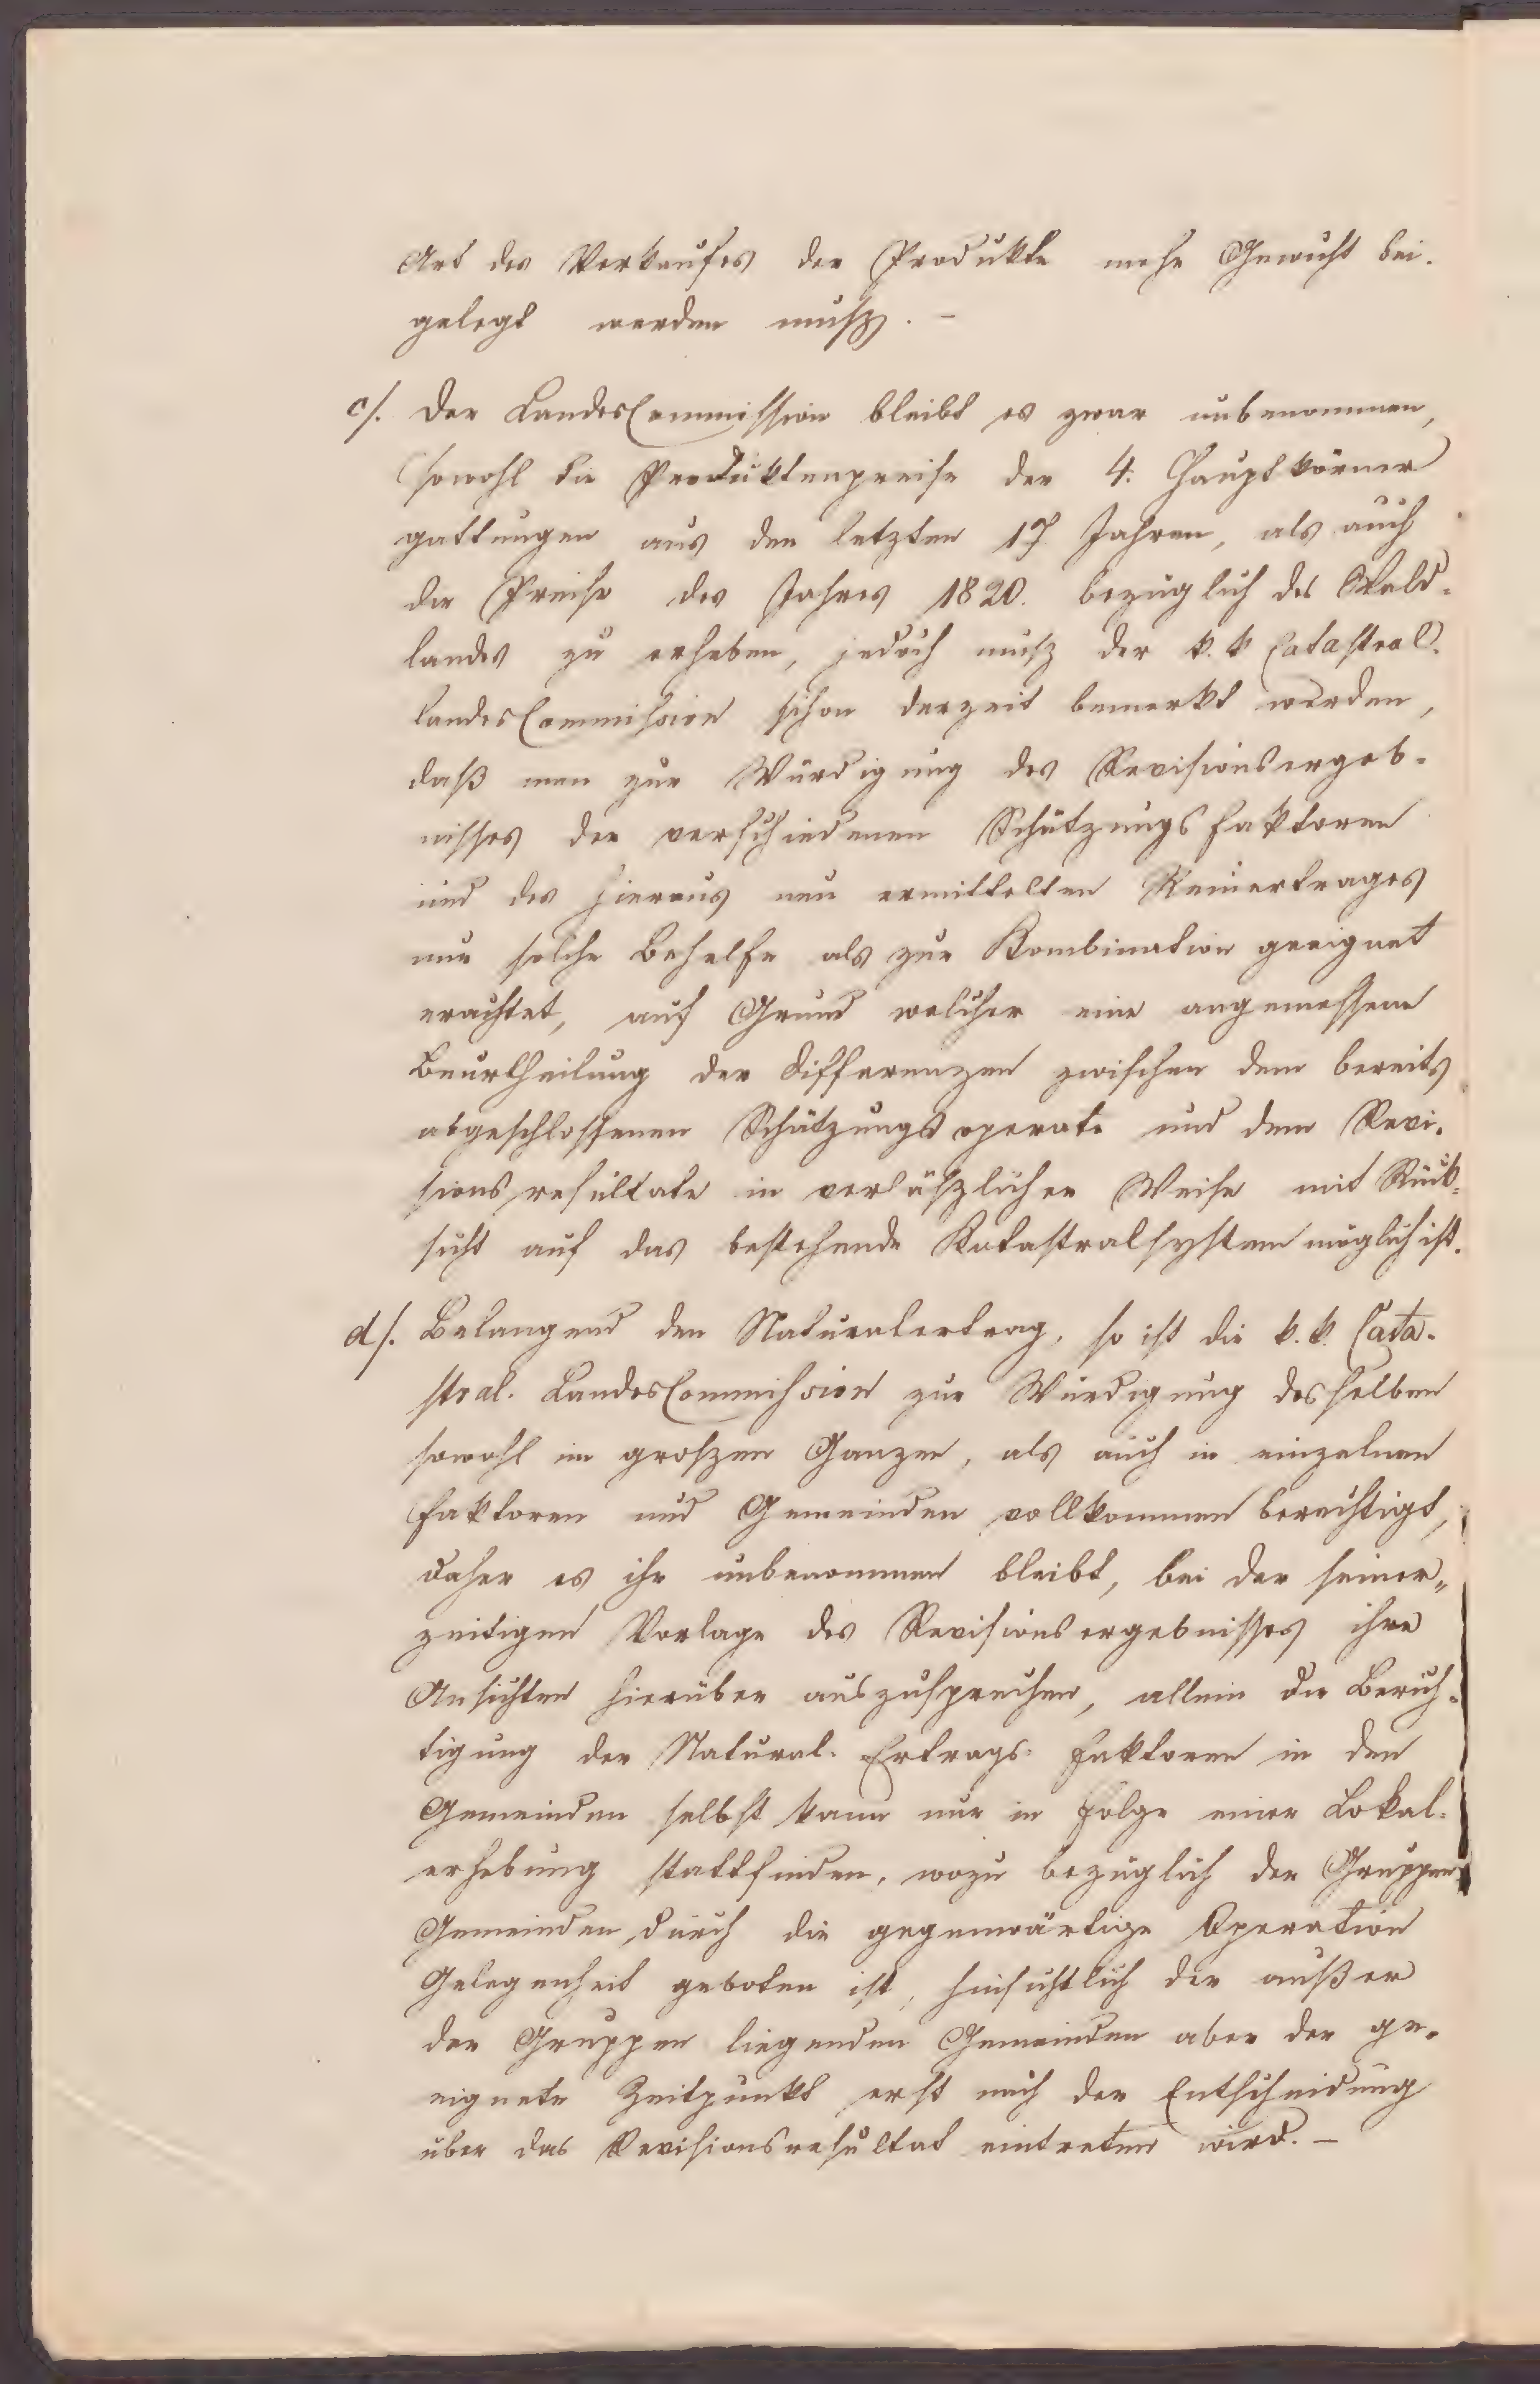 Art des Verkaufes der Produkte mehr Gewicht bei-
gelegt werden muß. –
c/. Der LandesCommission bleibt es zwar unbenommen,
sowohl die Produktenpreise der 4. Hauptkörner
gattungen aus den letzten 17 Jahren, als auch
die Preise des Jahres 1820. bezüglich des Wald-
landes zu erheben, jedoch muß der k. k Catastral-
landesCommission schon derzeit bemerkt werden,
daß man zur Würdigung des Revisionsergeb-
nisses der verschiedenen Schätzungsfaktoren
und des hieraus neu ermittelten Reinertrages
nur solche Behelfe als zur Kombination geeignet
erachtet, auf Grund welcher eine angemessene
Beurtheilung der Differenzen zwischen dem bereits
abgeschlossenen Schätzungsoperate und dem Revi-
sionsresultate in verläßlicher Weise mit Rück-
sicht auf das bestehende Katastralsystem möglich ist.
d/. Belangend den Naturalertrag, so ist die k. k. Cata-
stral- LandesCommission zur Würdigung desselben
sowohl im großen Ganzen, als auch in einzelnen
Faktoren und Gemeinden vollkommen berechtigt,
daher es ihr unbenommen bleibt, bei der seiner„
zeitigen Vorlage des Revisionsergebnisses ihre
Ansichten hierüber auszusprechen, allein die Berich-
tigung der Natural- Ertrags- Faktoren in den
Gemeinden selbst kann nur in Folge einer Lokal-
erhebung stattfinden, wozu bezüglich der Gruppen
Gemeinden durch die gegenwärtige Operation
Gelegenheit geboten ist, hinsichtlich der außer
der Gruppen liegenden Gemeinden aber der ge-
eignete Zeitpunkt erst nach der Entscheidung
über das Revisionsresultat eintreten wird. –